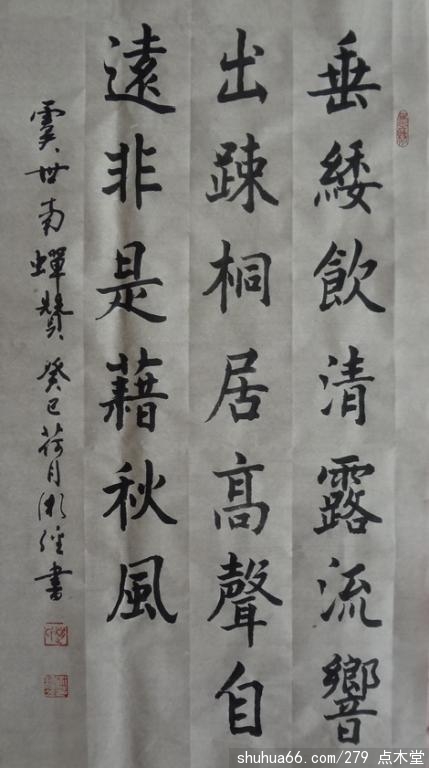 垂緌飲清露流響
出踈桐居高聲自
遠非是藉秋風
虞世南蟬贊癸巳荷月
書
shuhua66.com/279 点木堂